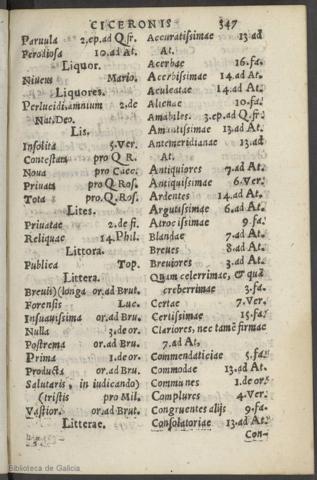 CICERONIS 347
Paruula 2.ep.ad Q.fr.
Perodiosa 10.ad At.
Liquor.
Niueus Mario.
Liquores.
Perlucidi,amnium 2.de
Nat.Deo.
Lis.
Insolita 5.Ver.
Contestata pro Q.R.
Noua pro Caec.
Priuata pro Q.Ros.
Tota pro Q.Ros.
Lites.
Priuatae 2.de fi.
Reliquae 14.Phil.
Littora.
Publica Top.
Littera.
Breuis)(longa or.ad Brut.
Forensis Luc.
Insuauissima or.ad Bru.
Nulla 3.de or.
Postrema or.ad Bru.
Prima 1.de or.
Producta or.ad Bru.
Salutaris, in iudicando)
(tristis pro Mil.
Vastior. or.ad Bru.
Litterae.
Accuratissimae 13.ad
At.
Acerbae 16.fa.
Acerbissimae 14.ad At.
Aculeatae 14.ad At.
Alienae 10.fa.
Amabiles. 3.ep.ad Q.fr.
Amantissimae 13.ad At.
Antemeridianae 13.ad
At.
Antiquiores 7.ad At.
Antiquissimae 6.Ver.
Ardentes 14.ad At.
Argutissimae 6.ad At.
Atrocissimae 9.fa.
Blandae 7.ad At.
Breues 8.ad At.
Breuiores 3.ad At.
Quam celerrimae, & quā
creberrimae 3.fa.
Certae 7.Ver.
Certissimae 15.fa.
Clariores, nec tamē firmae
7.ad At.
Commendaticiae 5.fa.
Commodae 13.ad At.
Communes 1.de or.
Complures 4.Ver.
Congruentes alijs 9.fa.
Consolatoriae 13.ad At.
Con-
Biblioteca de Galicia